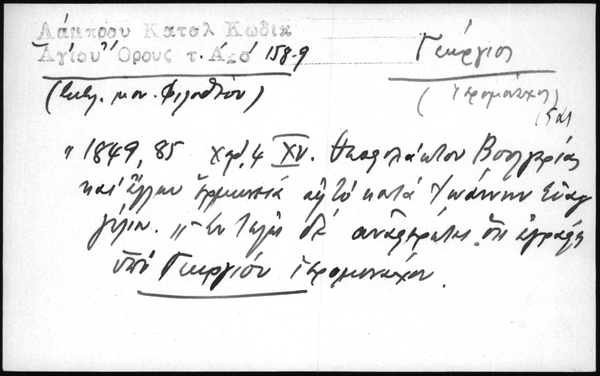 Λάμπρου Καταλ Κωδικ
Ἁγίου Ὄρους τ. Αʹ σ 158-9
Γεώργιος
(Βιβλ. μον. Φιλοθέου)
(Ἱερομόναχος)
"1849, 85 χαρτ. 4 XV. Θεοφυλάκτου Βουλγαρίας
καὶ ἄλλων ἑρμηνεία εἰς τὸ κατὰ Ἰωάννην Εὐαγ
γέλιον. " Ἐν τέλει δὲ ὅτι ἐγράφη
ὑπὸ Γεωργίου Ἱερομονάχου.